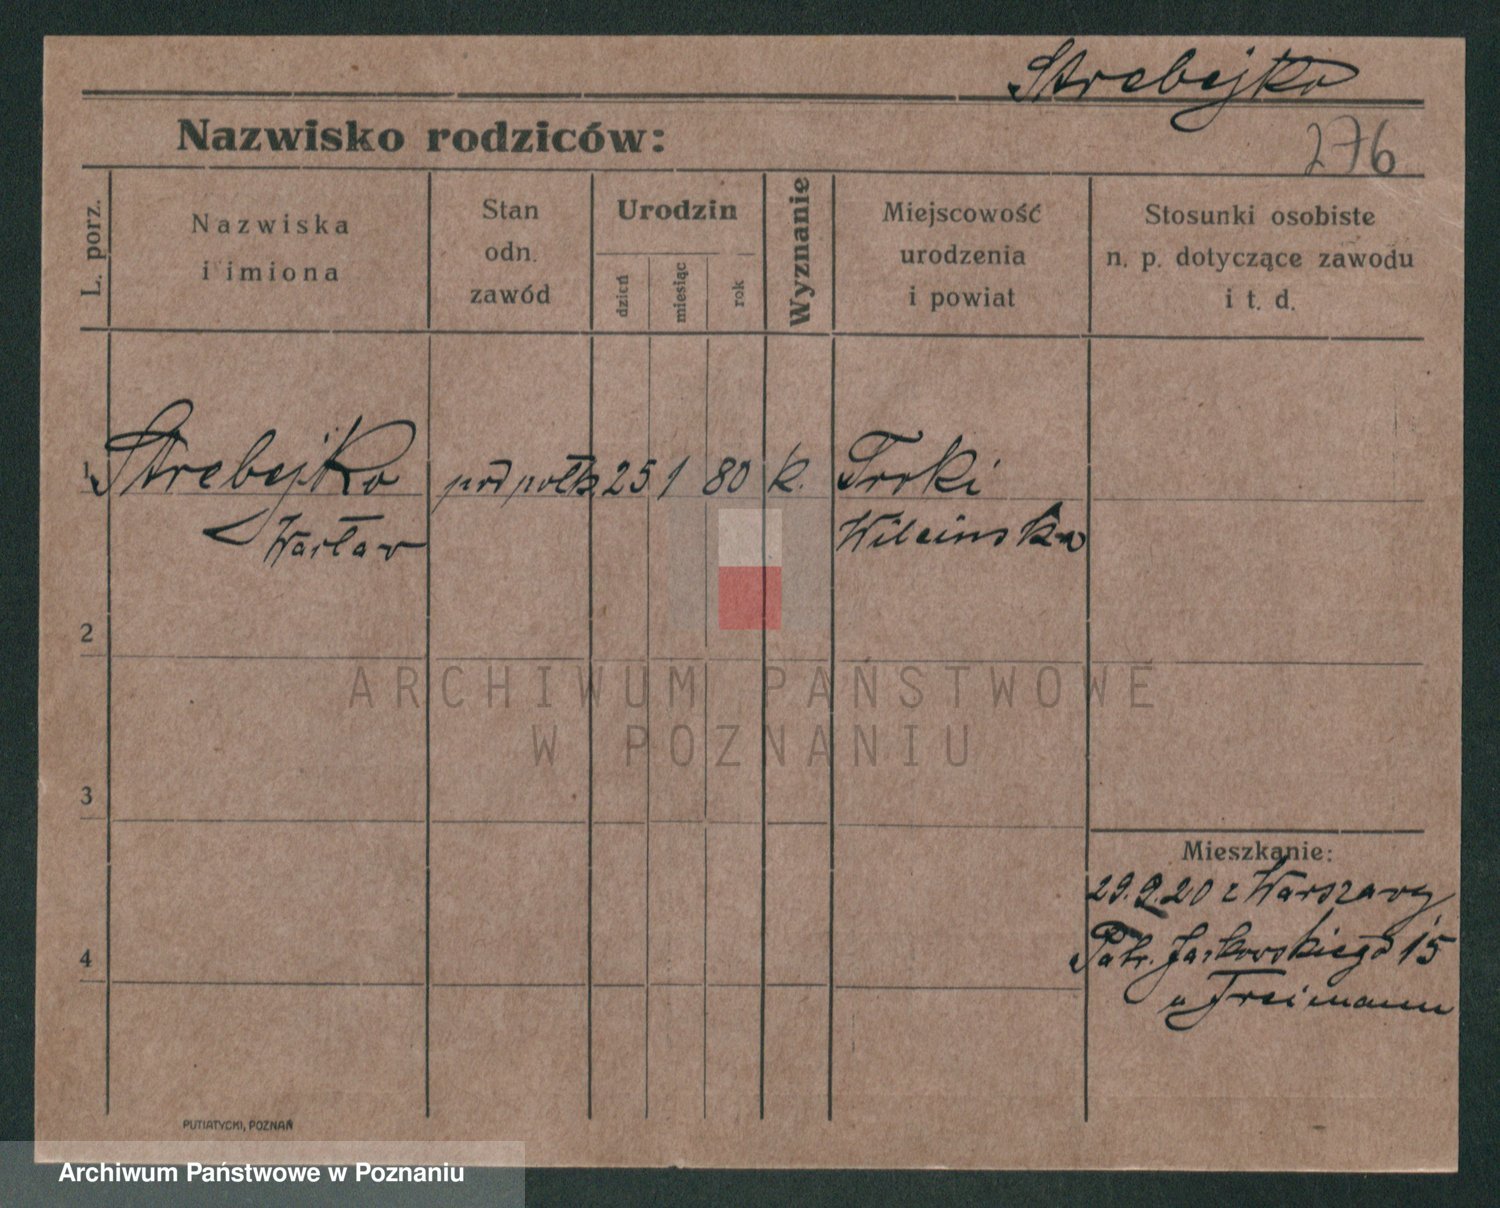 Strebejko
Nazwisko rodziców:
276
L. porz.
Nazwiska
i imiona
Stan
odn.
zawód
Urodzin
dzień
miesiąc
rok
Wyznanie
Miejscowość
urodzenia
i powiat
Stosunki osobiste
n. p. dotyczące zawodu
i t. d.
1 Strebejko podpołk 25 1 80 k. Troki
Wacław
2
ARCHIWUM PAŃSTWOWE
W POZNANIU
3
Mieszkanie:
29.9.20 z Warszawy
Patr. Jackowskiego 15
u Freimann
4
PUTIATYCKI, POZNAŃ
Archiwum Państwowe w Poznaniu